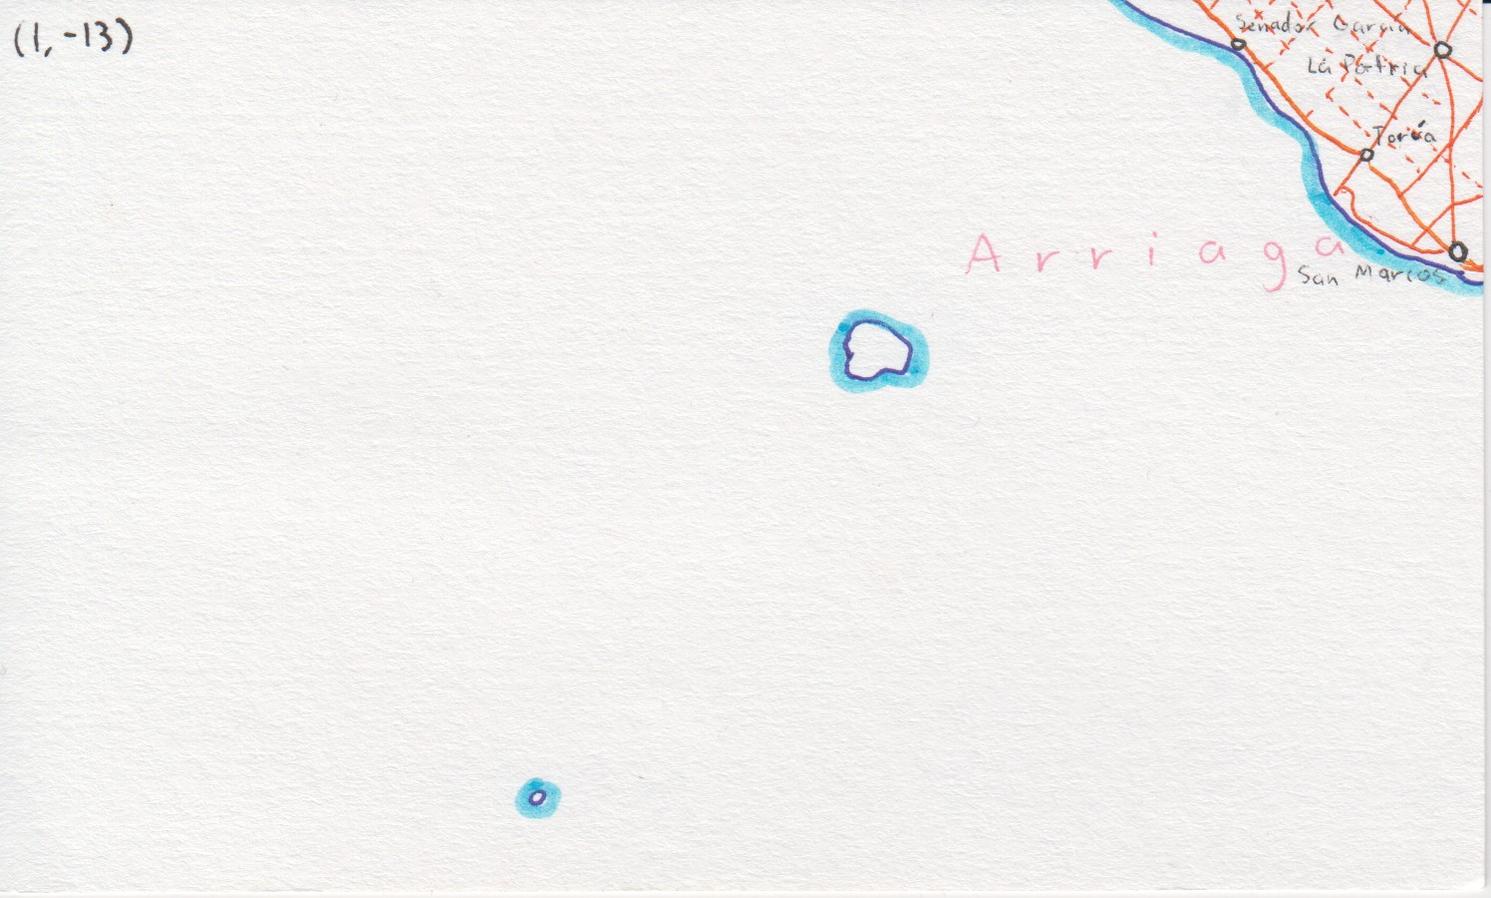 (1,-13)
Senador García
La Patria
Toría
Arriaga
San Marcos